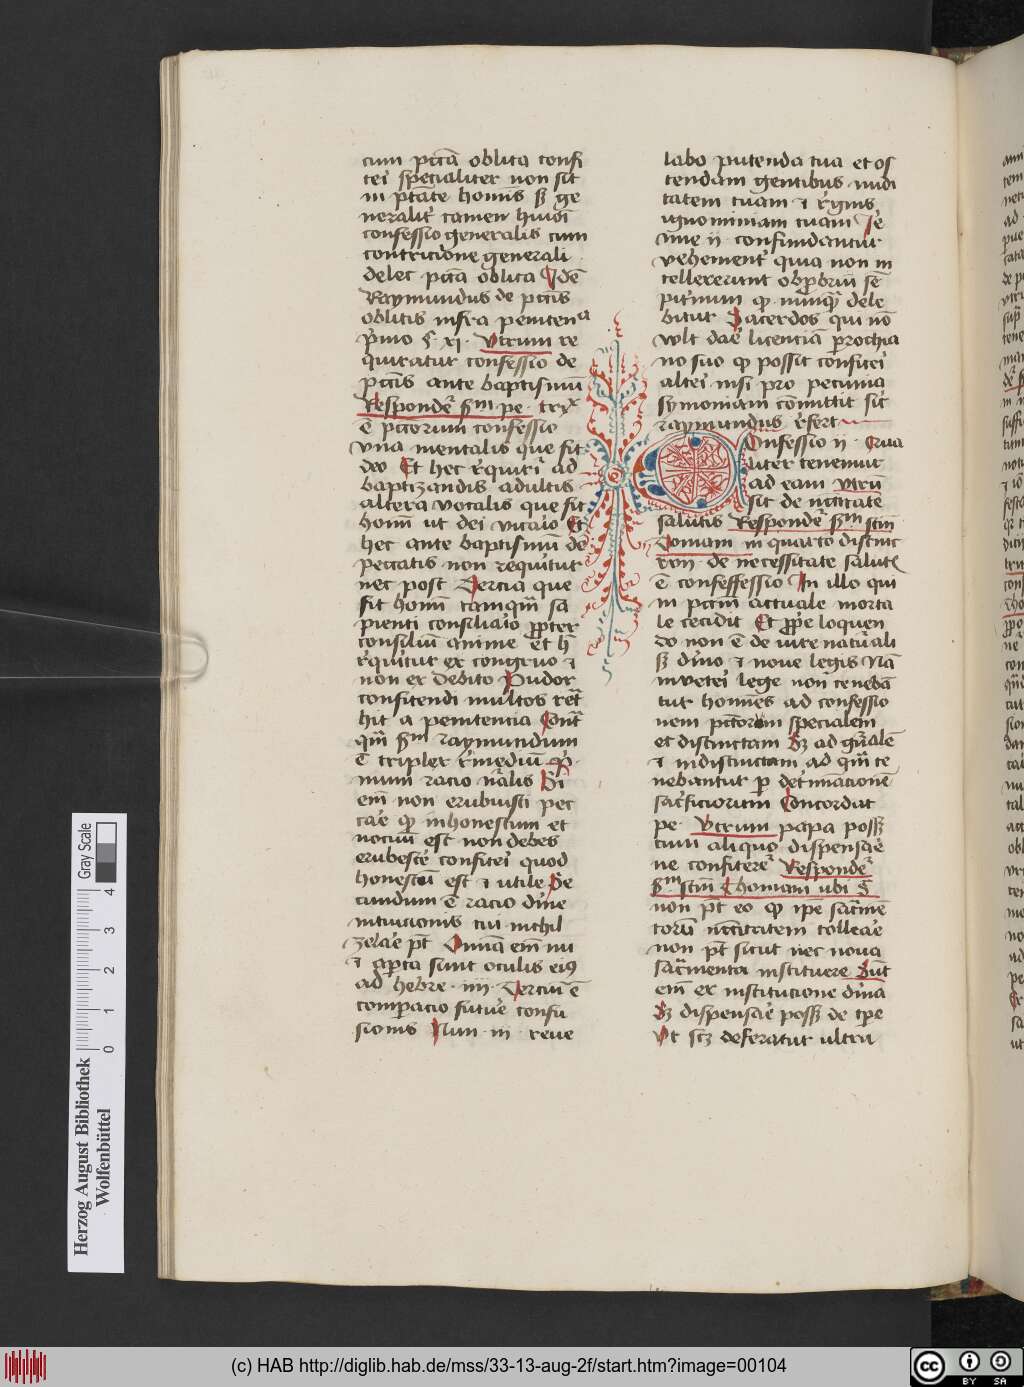 cum pctā oblita confi
teri specialiter non sit
in ptāte homīs sꝫ ge
neralit̄ tamen huiō
confessio generalis cum
contricione generali
delet pctā oblita Idē
Raymundus de pctīs
oblitis infra peniten
pīmo § xj · Utrum re
quiratur confessio de
pctīs ante baptismū
Respondet̄ pe·
ē pctorum confessio
vna mentalis que fit
deo Et hec r̄quirit̄ ad
baptizandis adultis
altera vocalis que fit
homī ut dei vicario Et
hec ante baptismū de
peccatis non requiritur
nec post Tercia que
fit homī tamqm̄ sa
pienti consiliario pp̄ter
consiliū anime et h̄
r̄quiritur ex congruo ⁊
non ex debito Pudor
confitendi multos ret̄
hit a penitencia Cont̄
qm̄ raymundum
ē triplex r̄mediū Pͥ
mum racio nr̄alis Si
em̄ non erubuisti pec
care qꝫ inhonestum et
nociuū est non debes
erubescē confiteri quod
honestū est ⁊ utile Se
cundum ē racio diuīe
intuicionis cui nichil
celare pt̄ Omīa em̄ nu
⁊ apta sunt oculis eiꝰ
ad hebre · iiij · Terciū ē
comparacio future confu
sionis Num · iij · reue
labo putenda tua et os
tendam gentibus nudi
tatem tuam ⁊ regnis
ignominiam tuam Je
confundantur
vehement̄ quia non in
tellexerunt obprobriū sē
piternum qꝫ nūquā dele
bitur Sacerdos qui nō
vlt dare licentiā parochia
no suo qꝫ possit confiteri
alteri nisi pro pecunia
symoniam cōmittit sic
raymundus r̄fert
Confessio ij · Qua
liter tenemur
ad eam Utrū
sit de nccitate
salutis Respondet̄ scm̄
Thomam in quarto distinc
xvij · de necessitate salut
ē confeffessio In illo qui
in pctm̄ actuale morta
le cecidit Et pp̄rie loquen
do non ē de iure naturali
sꝫ diuīo ⁊ noue legis Nā
in veteri lege non̄ teneba
tur homīes ad confessio
nem pctorum specialem
et distinctam Sꝫ ad gn̄alē
⁊ indistinctam ad qm̄ te
nebantur p determinacionē
sacrificiorum Concordat
pe· Utrum papa possꝫ
cum aliquo dispensare
ne confiteret̄ Respondet̄
scm̄ Thomam ubi s̄
non pt̄ eo qꝫ ip̄e sacrmē
torū nccitatem tollere
non pt̄ sicut nec noua
sacrmenta instituere Sūt
em̄ ex institucione diuīa
Sꝫ dispensare possꝫ de tpe
Ut scꝫ deferatur ultra
Herzog August Bibliothek
Wolfenbüttel
Gray Scale
0 1 2 3 4
(c) HAB http://diglib.hab.de/mss/33-13-aug-2f/start.htm?image=00104
cc BY SA